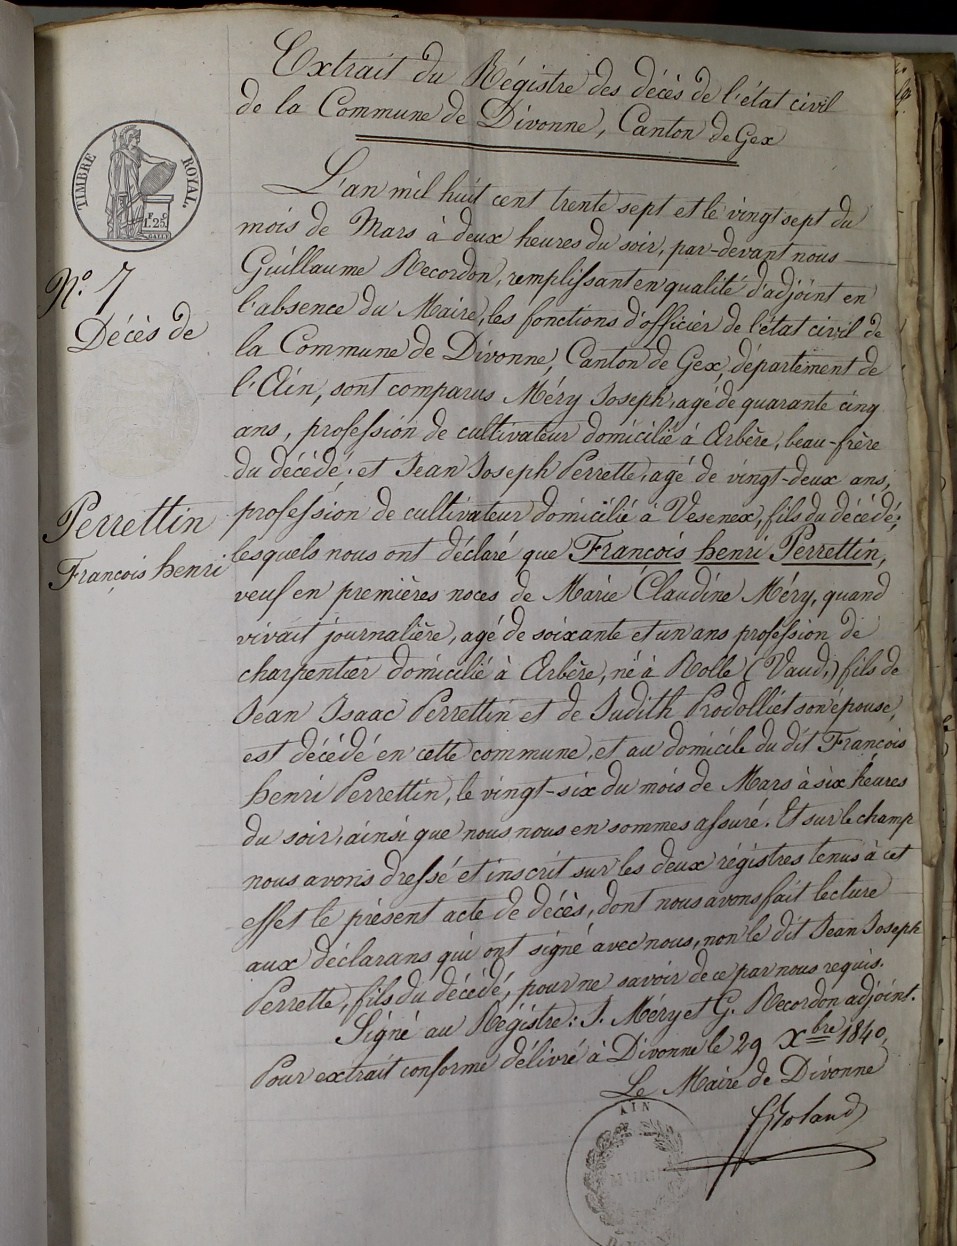 Extrait du Régistre des décès de l'état civil
de la Commune de Divonne, Canton de Gex
TIMBRE ROYAL.
F. C.
1.25
L'an mil huit cent trente sept et le vingt sept du
mois de Mars à deux heures du soir, par-devant nous
Guillaume Recordon, remplissant en qualité d'adjoint en
l'absence du Maire, les fonctions d'officier de l'état civil de
la Commune de Divonne, Canton de Gex, département de
l'Ain, sont comparus Méry Joseph, agé de quarante cinq
ans, profession de cultivateur domicilié à Arbère, beau-frère
du décédé; et Jean Joseph Perrette, agé de vingt-deux ans,
profession de cultivateur domicilié à Vesenex, fils du décédé;
lesquels nous ont déclaré que François henri Perrettin,
veuf en premières noces de Marie Claudine Méry, quand
vivait journalière, agé de soixante et un ans profession de
charpentier domicilié à Arbère, né à Rolle (Vaud,) fils de
Jean Isaac Perrettin et de Judith Prodolliet son épouse,
est décédé en cette commune, et au domicile du dit François
henri Perrettin, le vingt-six du mois de Mars à six heures
du soir, ainsi que nous nous en sommes assuré. Et sur le champ
nous avons dressé et inscrit sur les deux régistres tenus à cet
effet le présent acte de décès, dont nous avons fait lecture
aux déclarans qui ont signé avec nous, non le dit Jean Joseph
Perrette, fils du décédé, pour ne savoir de ce par nous requis.
Signé au Régistre: J. Méry et G. Recordon adjoint.
Pour extrait conforme délivré à Divonne le 29 Xbre 1840,
Le Maire de Divonne
Nº. 7
Décès de
Perrettin
François henri
AIN